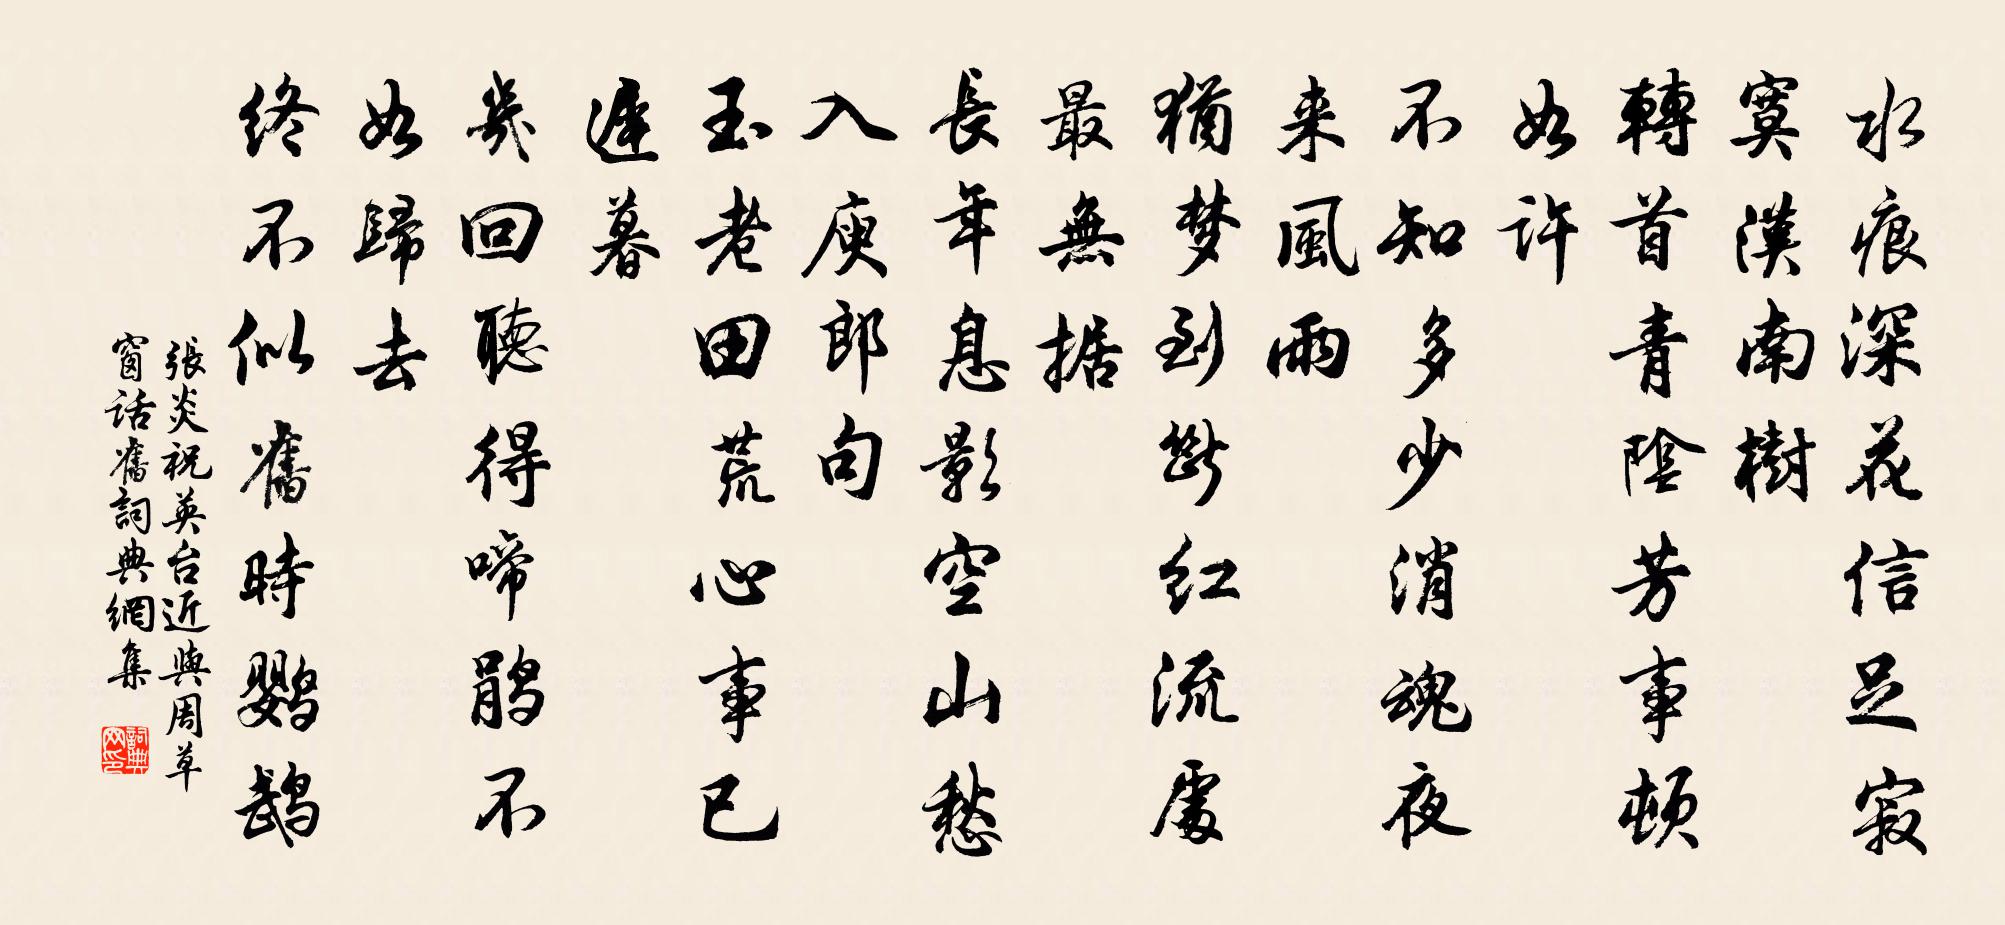 水痕深花信足寂
寞漢南樹
轉首青陰芳事頓
如許
不知多少消魂夜
来風雨
猶梦到斷红流處
最無据
長年息影空山愁
入庾郎句
玉老田荒心事已
遲暮
幾回聽得啼鹃不
如歸去
終不似舊時鹦鹉
張炎祝英台近與周草
窗話舊詞典網集
詞典
网印